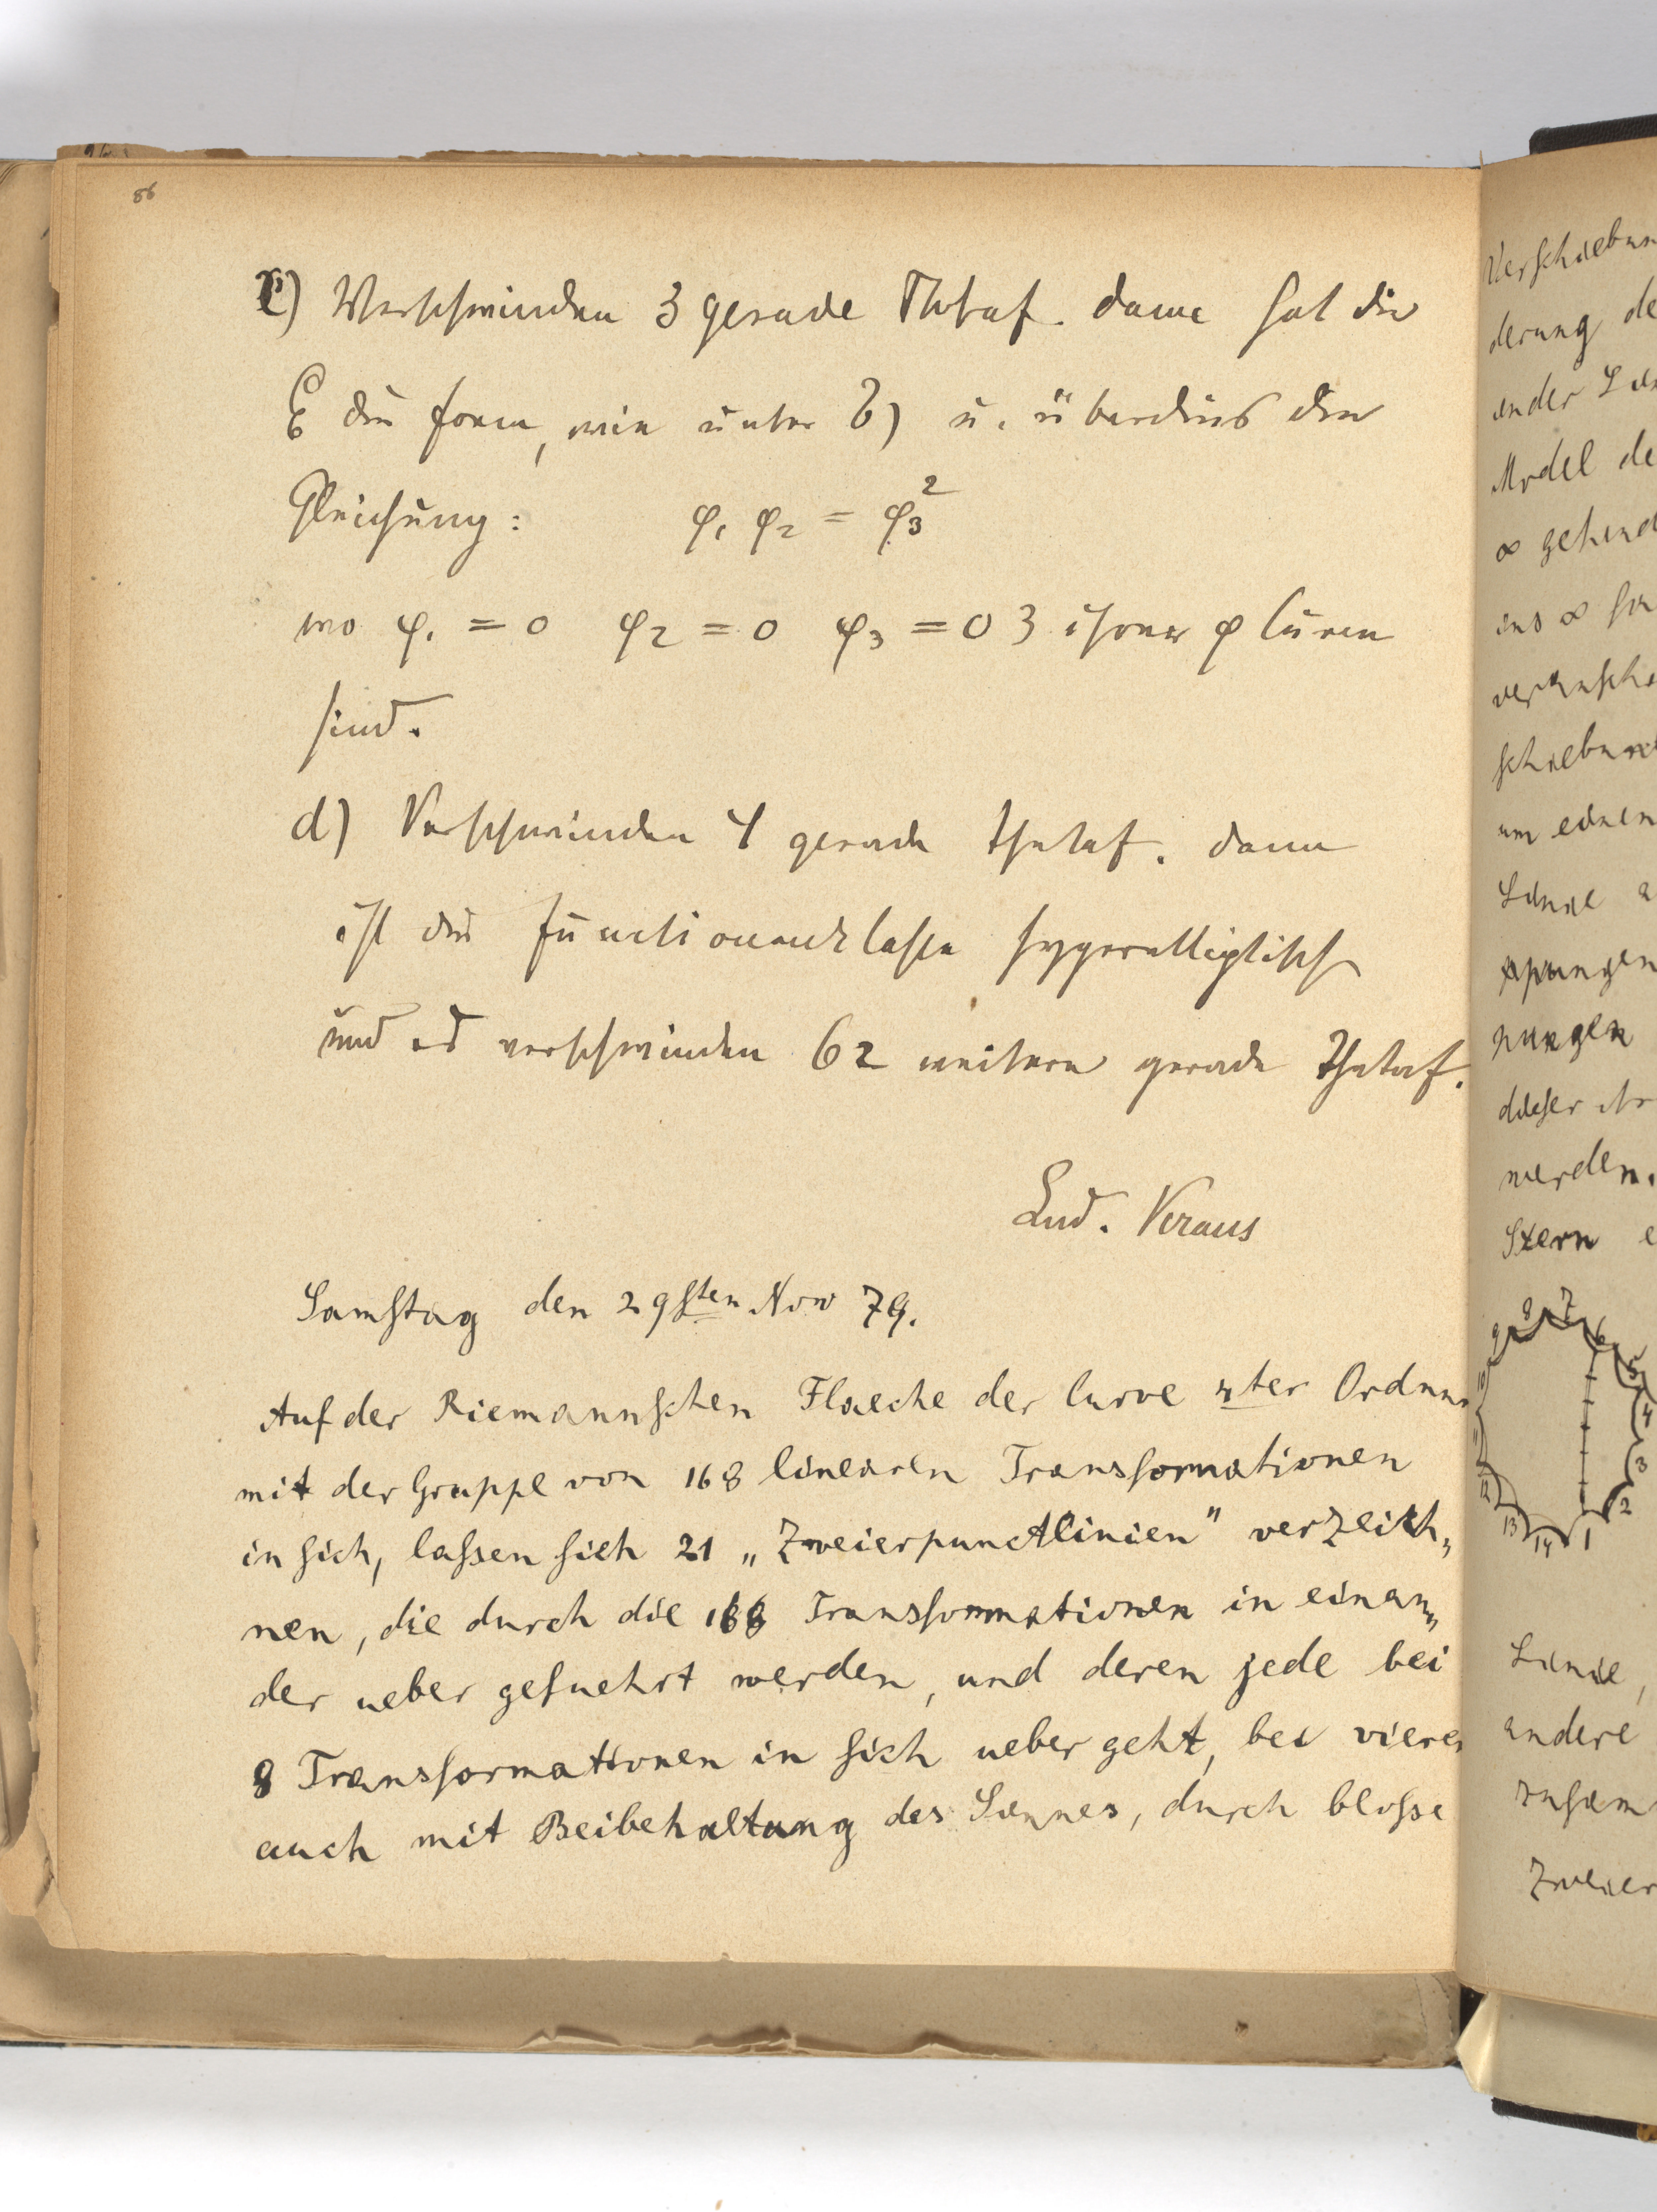 86
c) Verschwinden 3 gerade Thetaf. dann hat die
C6 die Form, wie unter b) u. überdies die
Gleichung: φ1 φ2 = φ3²
wo φ1 = 0 φ2 = 0 φ3 = 0 3 ihrer φ Curven
sind.
d) Verschwinden 4 gerade Thetaf. dann
ist die Functionenklasse hyperelliptisch
und es verschwinden 62 weitere gerade Thetaf.
Lud. Kraus
Samstag den 29sten Nov 79.
Auf der Riemannschen Flaeche der Curve 4ter Ordnung
mit der Gruppe von 168 linearen Transformationen
in sich, lassen sich 21 „Zweierpunctlinien" verzeich„
nen, die durch die 168 Transformationen in einan„
der ueber gefuehrt werden, und deren jede bei
8 Transformationen in sich ueber geht, bei vieren
auch mit Beibehaltung des Sinnes, durch blosse
Verschiebun
derung de
ander Lin
Model de
∞ gehend
ins ∞
veranscha
schiebun
um einen
Linie
nungen
dieser
werden.
Stern e
1 2 3 4 5 6 7 8 9 10 11 12 13 14
Linie,
andere
zusam
Zweier